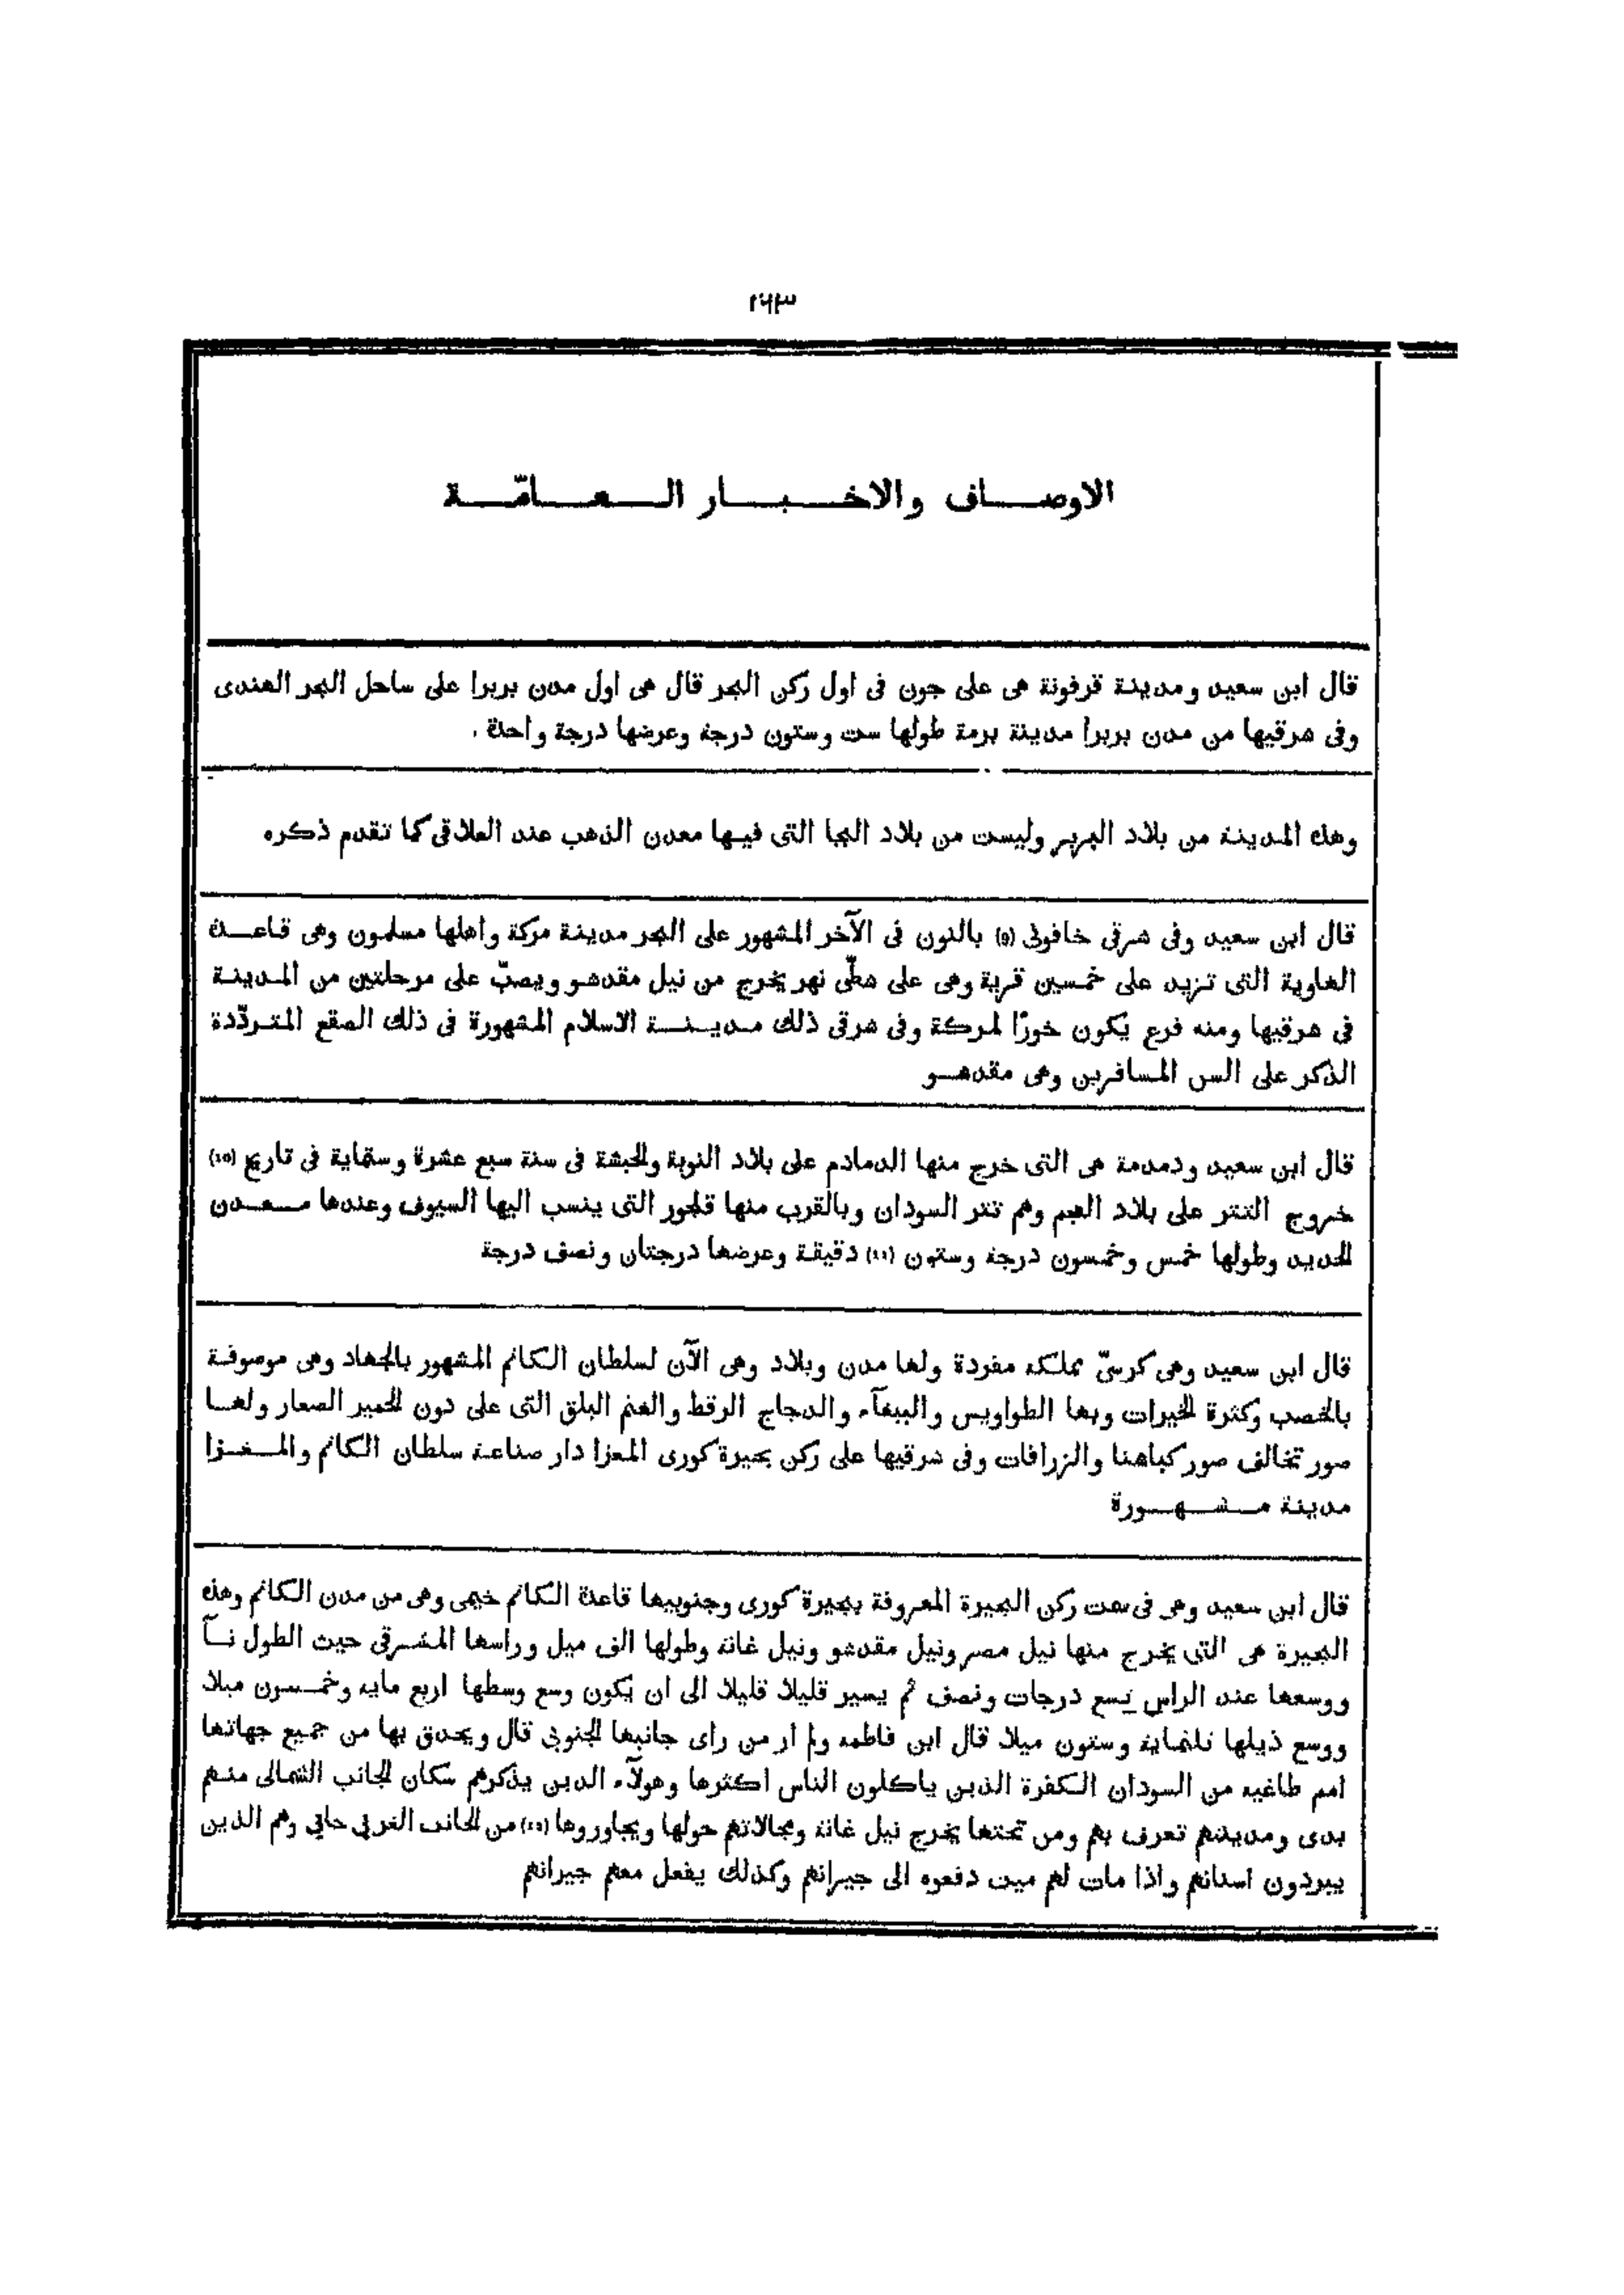 ١٦٣
الاوصاف والاخبار العامّة
قال ابن سعيد ومدينة قرفونة هى على جون فى اول ركن البحر قال هى اول مدن بربرا على ساحل البحر الهندى
وفى شرقيها من مدن بربرا مدينة برمة طولها ست وستون درجة وعرضها درجة واحدة .
وهذه المدينة من بلاد البربر وليست من بلاد البجا التى فيها معدن الذهب عند العلاقى كما تقدم ذكره
قال ابن سعيد وفى شرقى خافونى (9) بالنون فى الآخر المشهور على البحر مدينة مركة واهلها مسلمون وهى قاعدة
الهاوية التى تزيد على خمسين قرية وهى على شطّى نهر يخرج من نيل مقدشو ويصبّ على مرحلتين من المدينة
فى شرقيها ومنه فرع يكون خورًا لمركة وفى شرقى ذلك مدينة الاسلام المشهورة فى ذلك الصقع المتردّدة
الذكر على السن المسافرين وهى مقدشو
قال ابن سعيد ودمدمة هى التى خرج منها الدمادم على بلاد النوبة والحبشة فى سنة سبع عشرة وستماية فى تاريخ (10)
خروج التتر على بلاد العجم وهم تتر السودان وبالقرب منها قلجور التى ينسب اليها السيوف وعندها معدن
الحديد وطولها خمس وخمسون درجة وستون (11) دقيقة وعرضها درجتان ونصف درجة
قال ابن سعيد وهى كرسىّ مملكة مفردة ولها مدن وبلاد وهى الآن لسلطان الكانم المشهور بالجهاد وهى موصوفة
بالخصب وكثرة الخيرات وبها الطواويس والببغآء والدجاج الرقط والغنم البلق التى على دون الحمير الصغار ولها
صور تخالف صور كباشنا والزرافات وفى شرقيها على ركن بحيرة كورى المغزا دار صناعة سلطان الكانم والمغزا
مدينة مشهورة
قال ابن سعيد وهى فى سمت ركن البحيرة المعروفة ببحيرة كورى وجنوبيها قاعدة الكانم خيمى وهى من مدن الكانم وهذه
البحيرة هى التى يخرج منها نيل مصر ونيل مقدشو ونيل غانة وطولها الف ميل وراسها المشرقى حيث الطول نآ
ووسعها عند الراس تسع درجات ونصف ثم يسير قليلا قليلا الى ان يكون وسع وسطها اربع ماية وخمسون ميلا
ووسع ذيلها ثلثماية وستون ميلا قال ابن فاطمة ولم ار من راى جانبها الجنوبى قال ويحدق بها من جميع جهاتها
امم طاغية من السودان الكفرة الذين ياكلون الناس اكثرها وهولآء الدين يذكرهم سكان الجانب الشمالى منهم
بدى ومدينتهم تعرف بهم ومن تحتها يخرج نيل غانة ومجالاتهم حولها ويجاوروها من الجانب الغربى جابى وهم الذين
يبردون اسنانهم واذا مات لهم ميت دفعوه الى جيرانهم وكذلك يفعل معهم جيرانهم